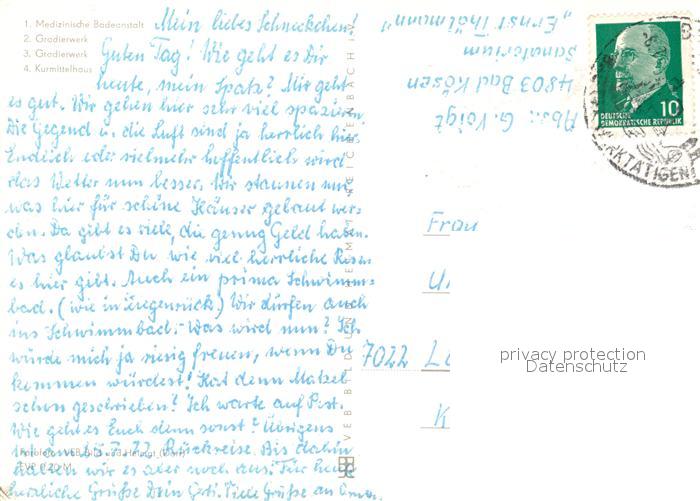 1. Medizinische Badeanstalt
2. Gradierwerk
3. Gradierwerk
4. Kurmittelhaus
Mein liebes Schneckchen!
Guten Tag! Wie geht es Dir
heute, mein Spatz? Mir geht
es gut. Wir gehen hier sehr viel spazieren.
Die Gegend u. die Luft sind ja herrlich hier.
Endlich oder vielmehr hoffentlich wird
das Wetter nun besser. Wir staunen nur,
was hier für schöne Häuser gebaut wer-
den. Da gibt es viele, die genug Geld haben.
Was glaubst Du wie viel herrliche Rosen
es hier gibt. Auch ein prima Schwimm-
bad. (wie in Ziegenrück) Wir dürfen auch
ins Schwimmbad. Was wird nun? Ich
würde mich ja riesig freuen, wenn Du
kommen würdest! Hat denn Matzel
schon geschrieben? Ich warte auf Post.
Wie geht es Euch denn sonst? Übrigens
ist am 7.7.72 Rückreise. Bis dahin
halten wir es aber noch aus. Für heute
herzliche Grüße Dein Gerti. Viele Grüße an
VEB BILD UND HEIMAT REICHENBACH I
Abs.: G. Voigt
4803 Bad Kösen
Sanatorium
"Ernst Thälmann"
10
DEUTSCHE
DEMOKRATISCHE REPUBLIK
RKTÄTIGEN
Frau
U
7022 L
K
privacy protection
Datenschutz